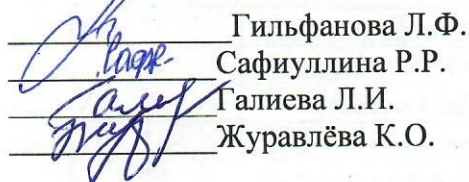 Гильфанова Л.Ф.
Сафиуллина Р.Р.
Галиева Л.И.
Журавлёва К.О.